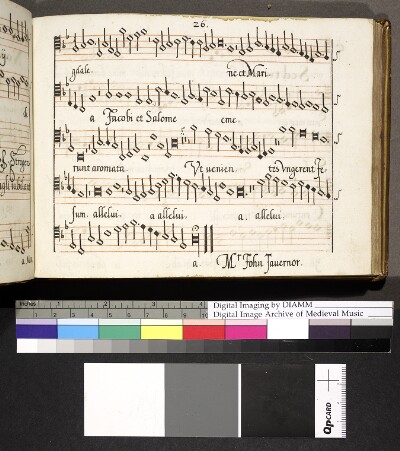 26.
gdale ne et Mari
a Jacobi et Salome eme.
runt aromata. Ut venien tes Vngerent Je
sum. allelui. a allelui. a. allelui.
a. Mr John Tavernor.
inches 1 2 3 4
Digital Imaging by DIAMM
Digital Image Archive of Medieval Music
QPCARD